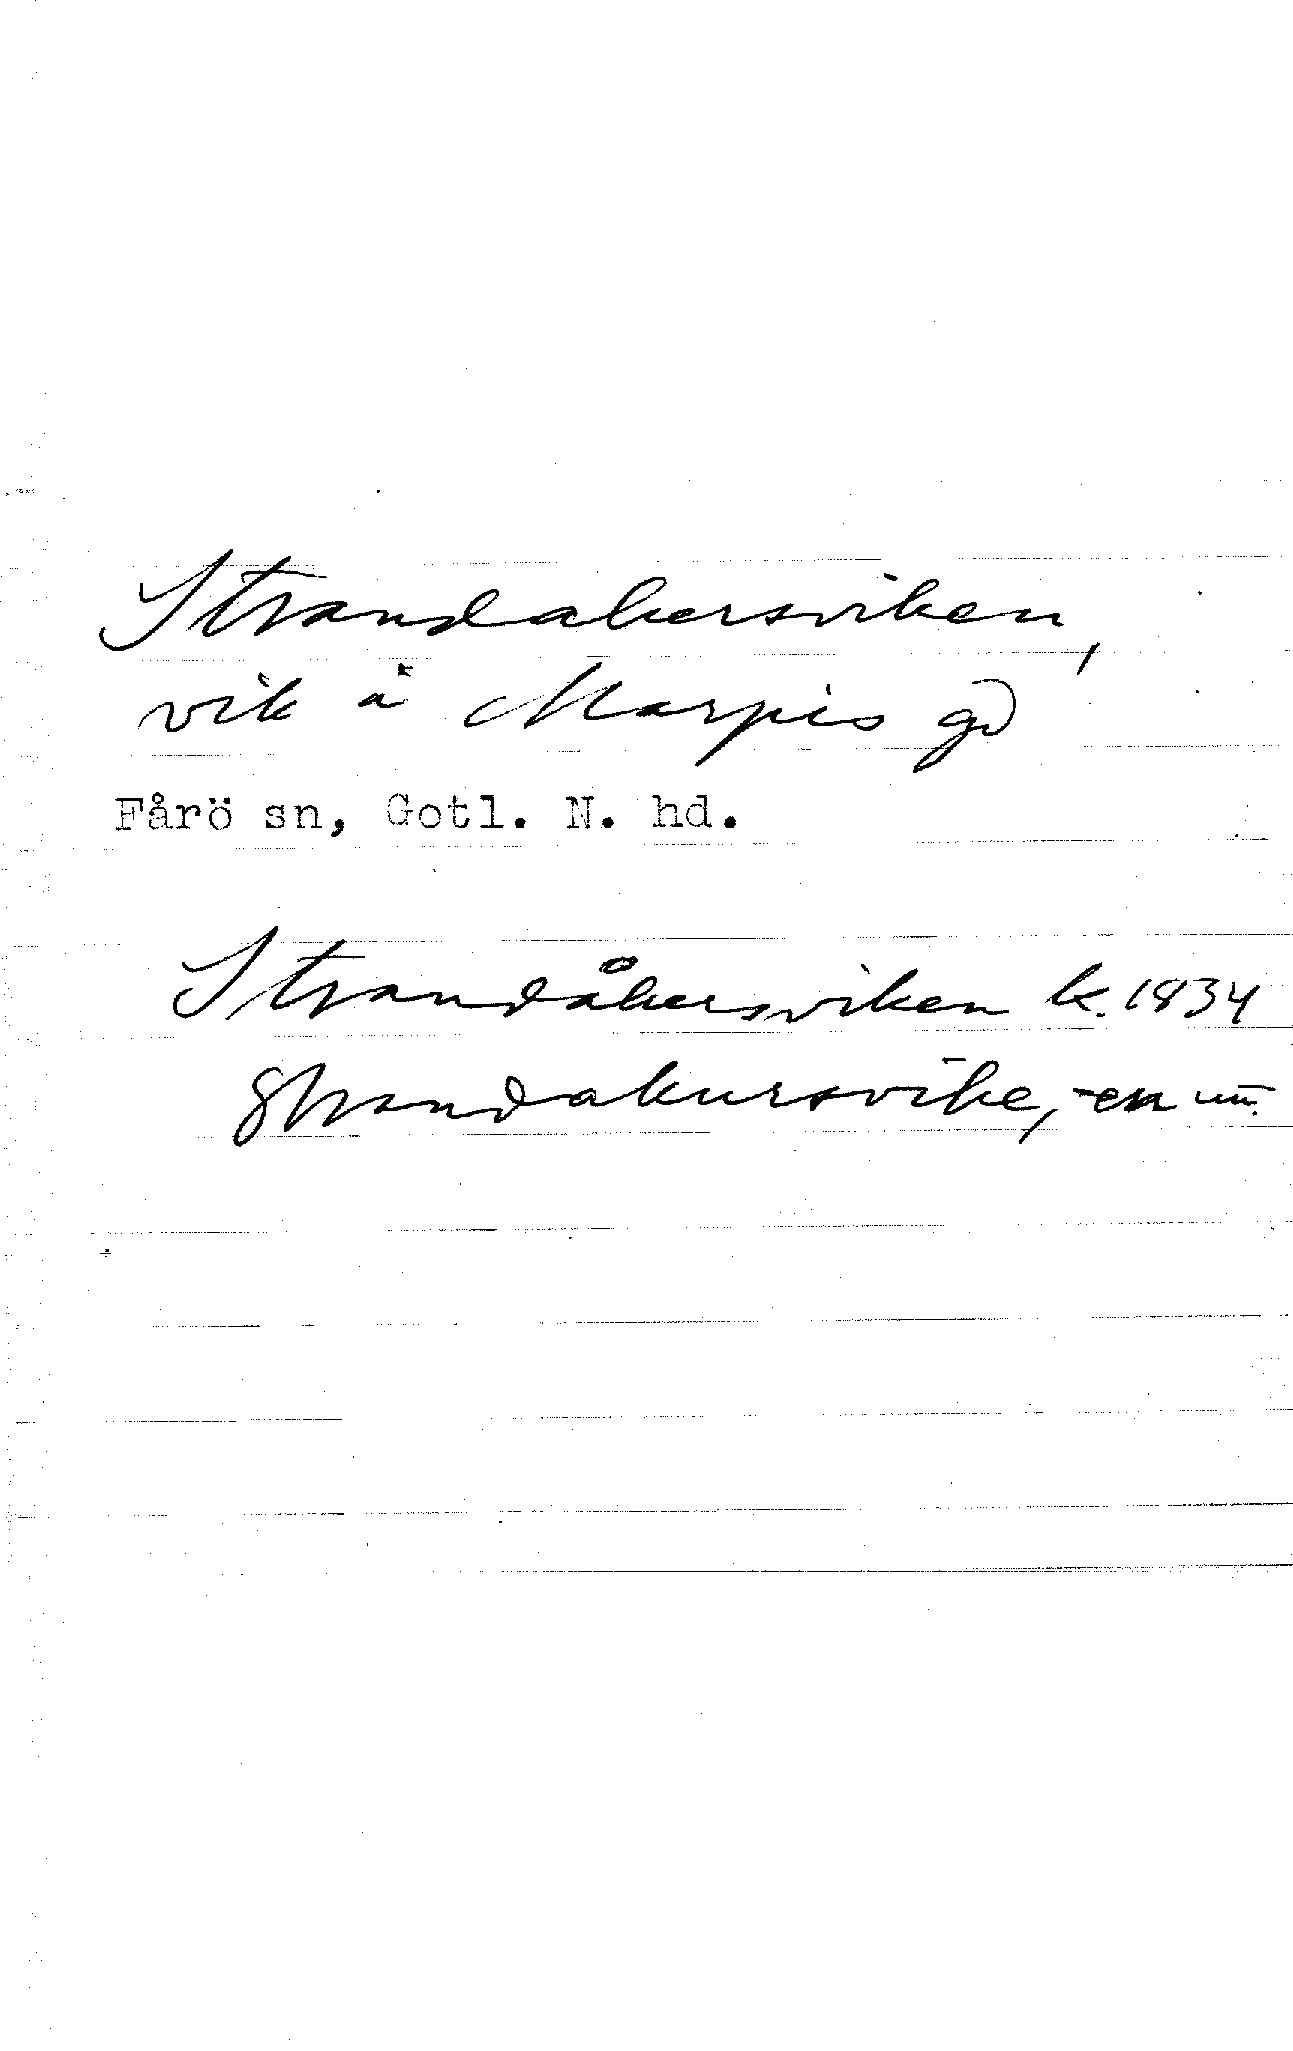 Strandakersviken,
vik å Marpis gd
Fårö sn, Gotl. N. hd.
Strandåkersviken k. 1834
Strandakursvike, -en um.